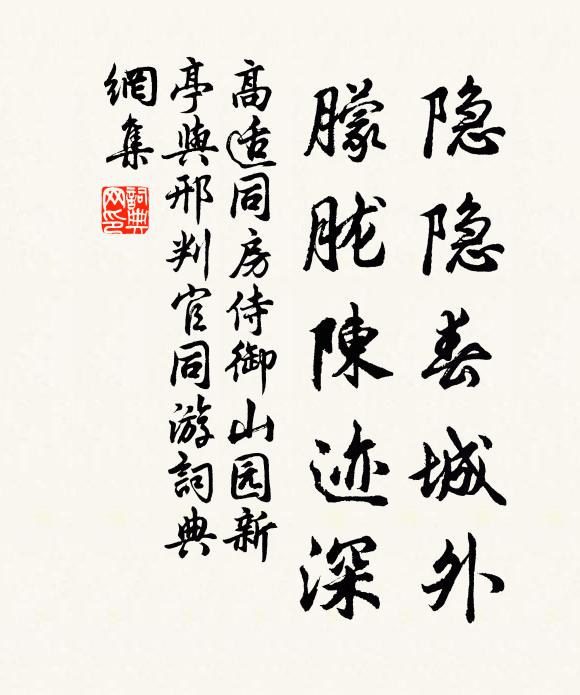 隐隐春城外
朦胧陳迹深
高适同房侍御山园新
亭與邢判官同游詞典
網集
詞典
网印